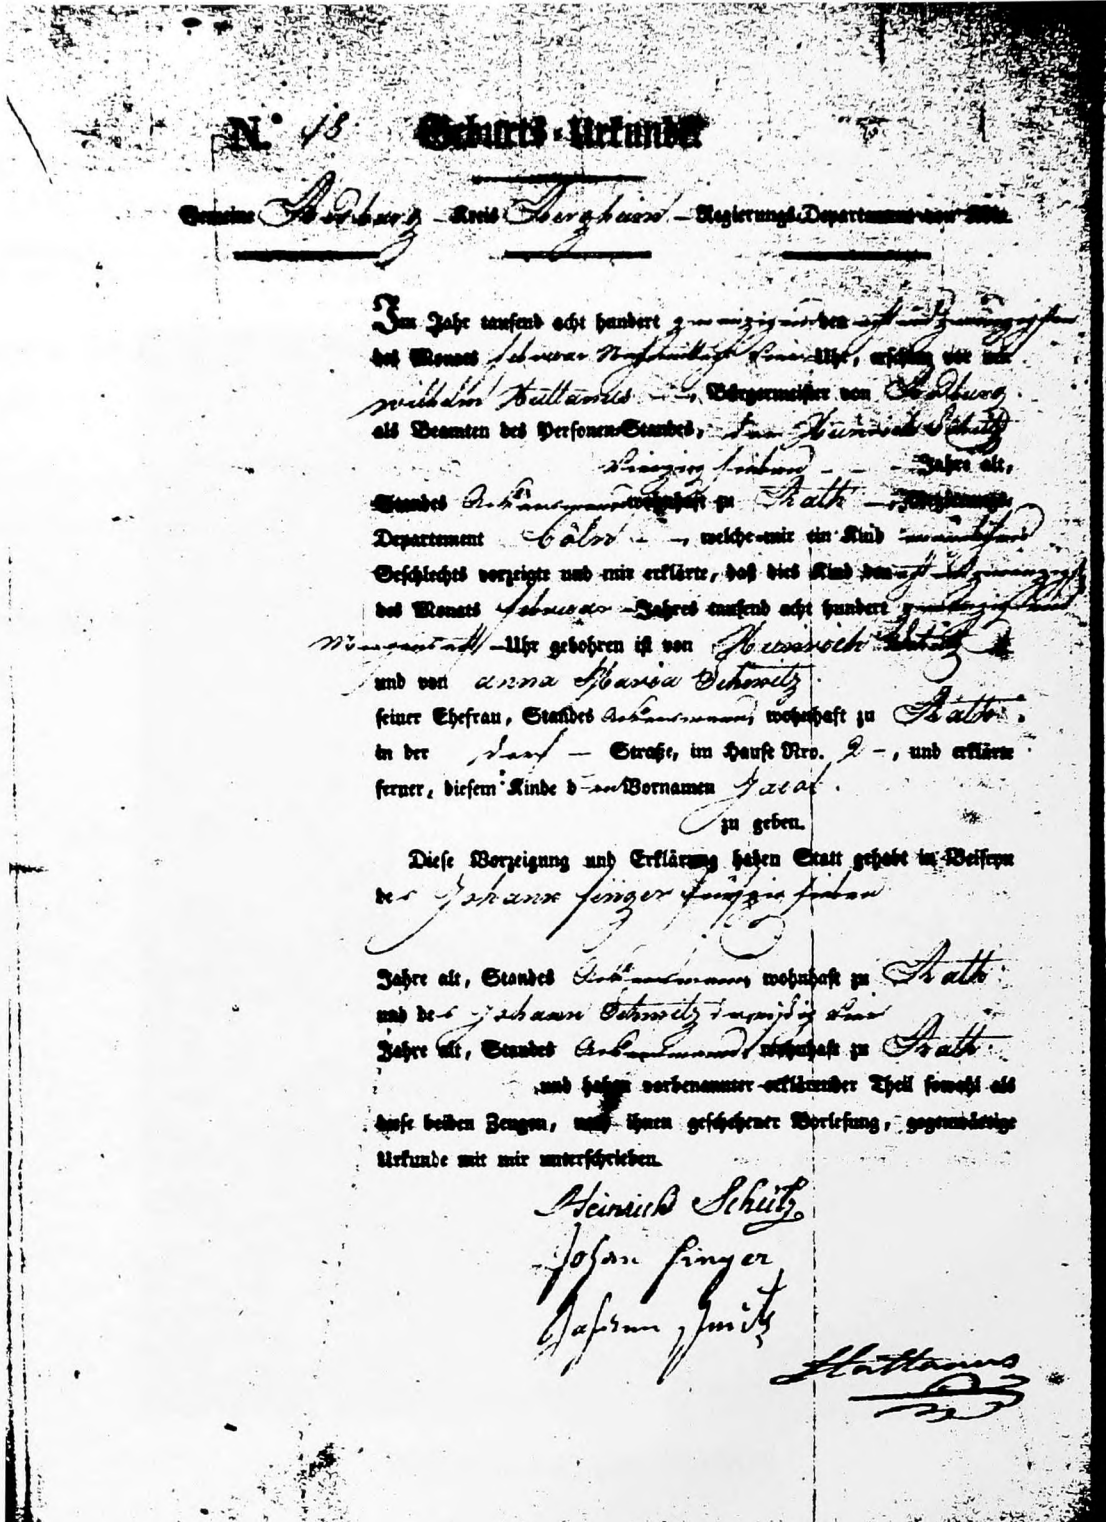 N.° 13 Geburts-Urkunde
Gemeine Bedburg – Kreis Bergheim – Regierungs-Departement von Köln.
Im Jahr tausend acht hundert den acht und zwanzigsten
des Monats februar Nachmittags Uhr, erschien vor mir
wilhelm Hattanus – , Bürgermeister von Bedburg
als Beamten des Personen-Standes, der Heinrich Schütz
vierzig sieben – – – Jahre alt,
Standes Ackersmann wohnhaft zu Rath – , Regierungs-
Departement Cöln – , welche mir ein Kind männlichen
Geschlechts vorzeigte und mir erklärte, daß dies Kind den acht und zwanzigsten
des Monats februar Jahres tausend acht hundert
Uhr gebohren ist von Heinrich Schütz
und von anna Maria Schmitz
seiner Ehefrau, Standes Ackersmann, wohnhaft zu Rath.
in der dorf – Straße, im Hause Nro. 2 – , und erklärte
ferner, diesem Kinde den Vornamen Jacob.
zu geben.
Diese Vorzeigung und Erklärung haben Statt gehabt in Beiseyn
des Johann finger fünfzig sieben
Jahre alt, Standes Ackersmann, wohnhaft zu Rath
und des Johann Schmitz dreißig
Jahre alt, Standes Ackersmann, wohnhaft zu Rath
und haben vorbenannter erklärender Theil sowohl als
diese beiden Zeugen, nach ihnen geschehener Vorlesung, gegenwärtige
Urkunde mit mir unterschrieben.
Heinrich Schütz
Johan finger
Johan Smitz
Hattanus